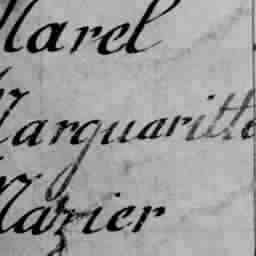 Marel
Marguaritte
Mazier